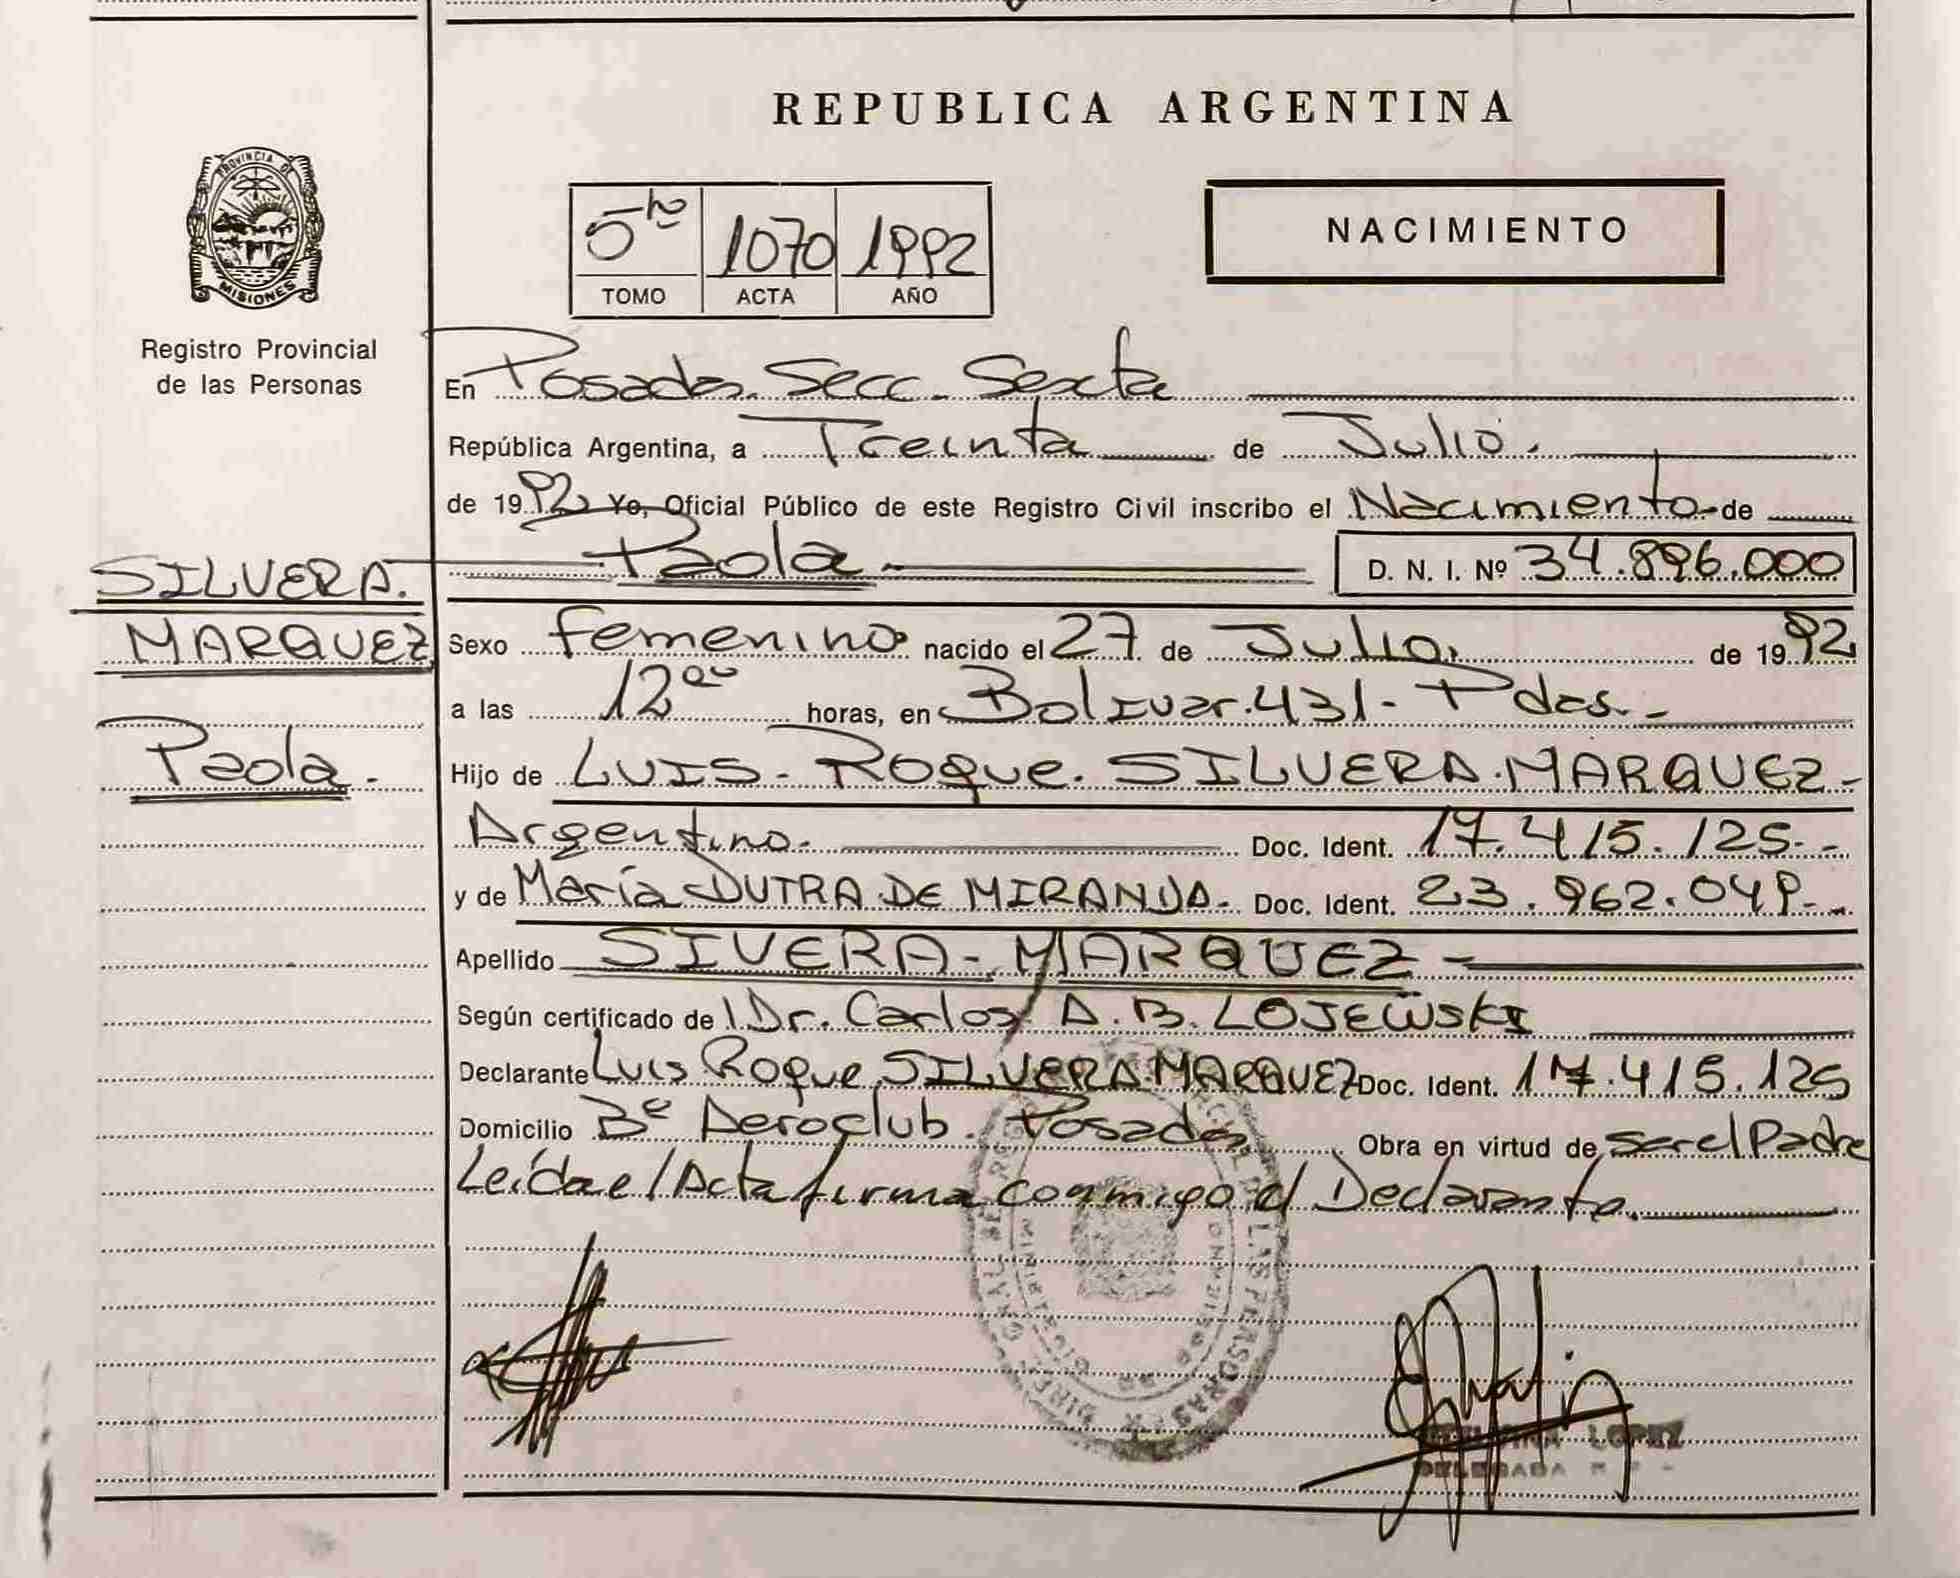 REPUBLICA ARGENTINA
PROVINCIA DE
MISIONES
Registro Provincial
de las Personas
5to 1070 1992
TOMO ACTA AÑO
NACIMIENTO
En Posadas. Secc. Sexta
República Argentina, a Treinta de Julio.
de 1992 Yo, Oficial Público de este Registro Civil inscribo el Nacimiento de
SILVERA.
MARQUEZ
Paola.
Paola D. N. I. Nº 34.896.000
Sexo femenino nacido el 27 de Julio. de 1992
a las 12 horas, en Bolivar. 431 - Pdas. -
Hijo de LUIS - Roque. SILVERA. MARQUEZ -
Argentino. Doc. Ident. 17.415.125. -
y de María DUTRA DE MIRANDA. Doc. Ident. 23.962.049. -
Apellido SIVERA - MARQUEZ -
Según certificado de l Dr. Carlos A. B. LOJEWSKI
Declarante Luis Roque SILVERA MARQUEZ Doc. Ident. 17.415.125
Domicilio Bº Aeroclub. Posadas Obra en virtud de ser el Padre
Leída el Acta firma conmigo el Declarante.
LAS PERSONAS
LOPEZ
DELEGADA